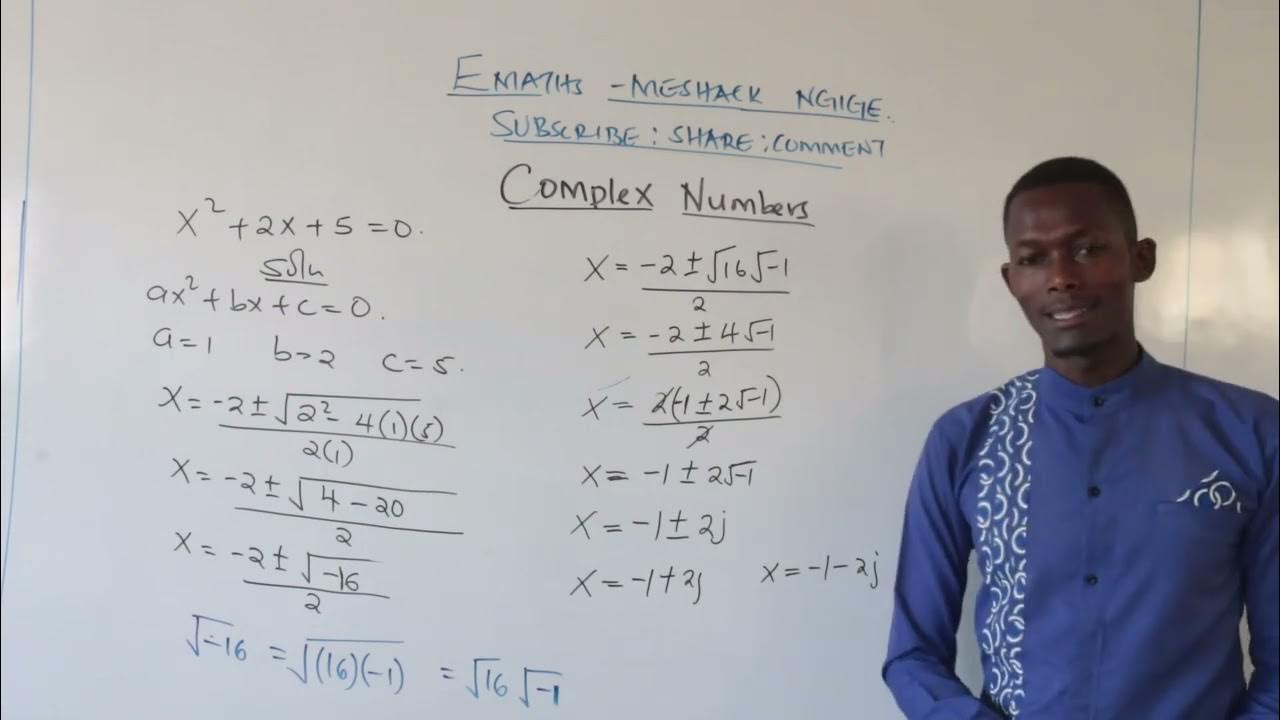 EMATHS - MESHACK NGIGE.
SUBSCRIBE : SHARE : COMMENT
Complex Numbers
x² + 2x + 5 = 0.
Soln
ax² + bx + c = 0.
a = 1 b = 2 c = 5.
x = -2 ± √(2² - 4(1)(5)) / 2(1)
x = -2 ± √(4 - 20) / 2
x = -2 ± √-16 / 2
√-16 = √(16)(-1) = √16 √-1
x = -2 ± √16 √-1 / 2
x = -2 ± 4√-1 / 2
x = 2(-1 ± 2√-1) / 2
x = -1 ± 2√-1
x = -1 ± 2j
x = -1 + 2j x = -1 - 2j